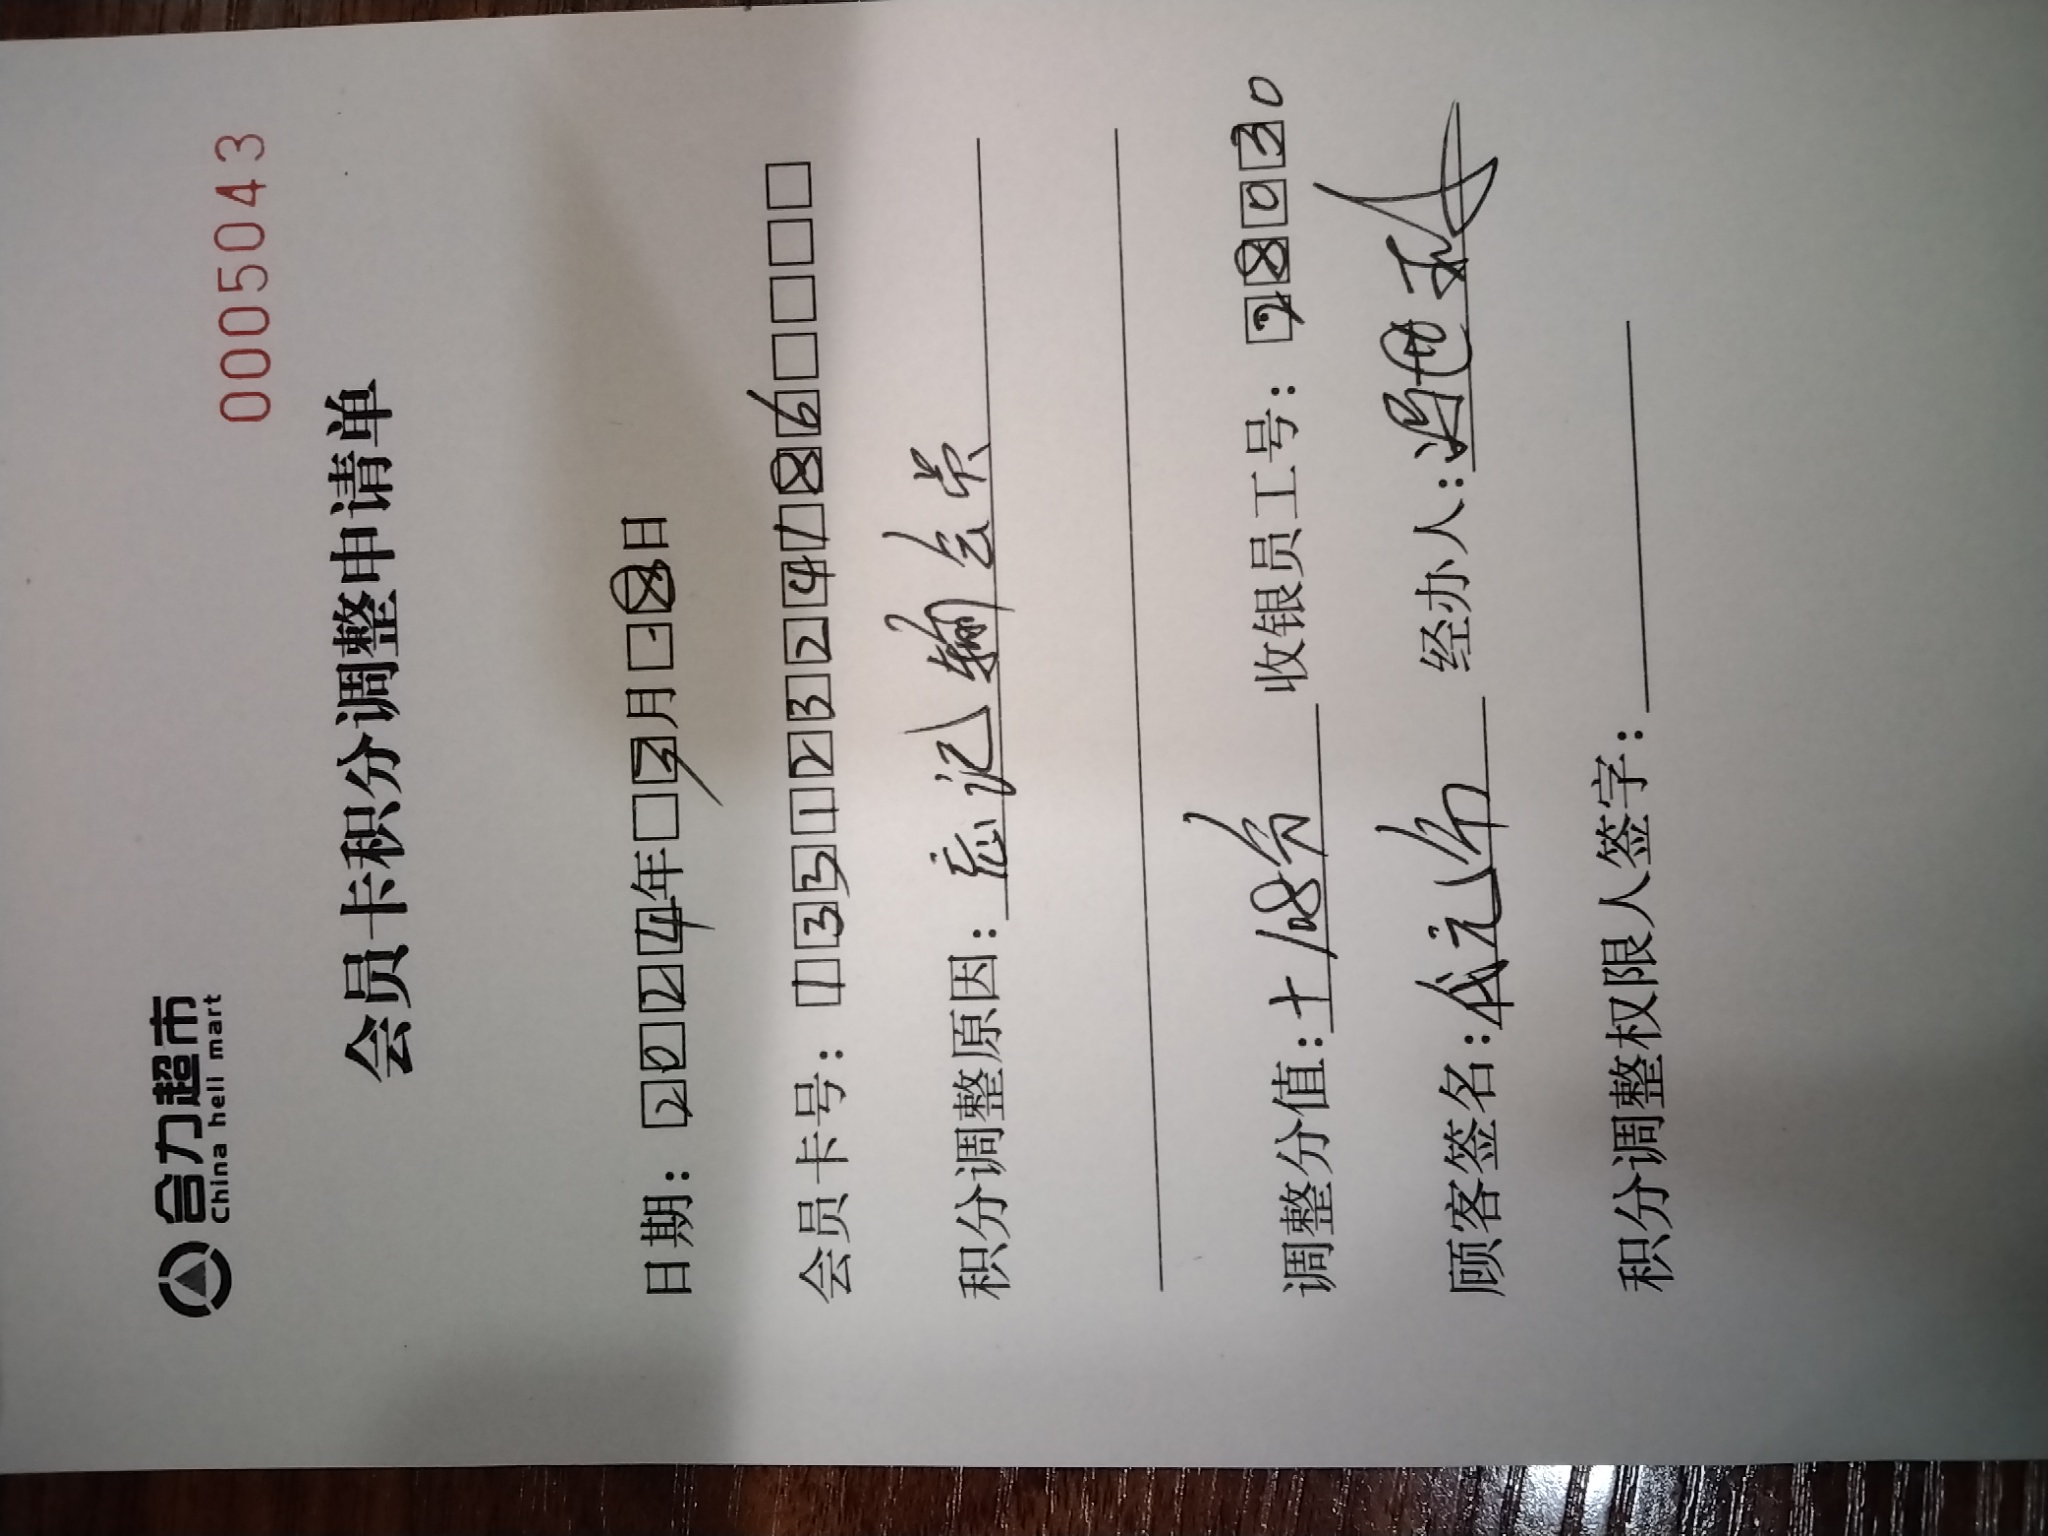 合力超市
China heli mart
0005043
会员卡积分调整申请单
日期：2024年3月18日
会员卡号：13312324786
积分调整原因：忘记输会员
调整分值：+108分 收银员工号：28030
顾客签名： 经办人：
积分调整权限人签字：